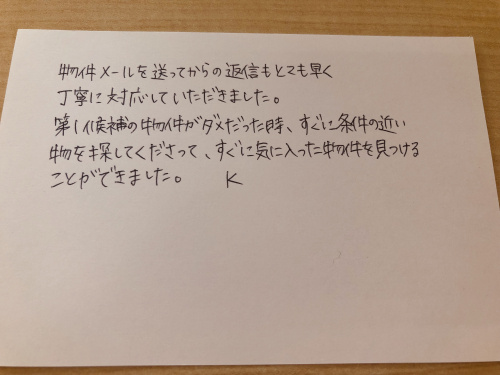 物件メールを送ってからの返信もとても早く
丁寧に対応していただきました。
第1候補の物件がダメだった時、すぐに条件の近い
物を探してくださって、すぐに気に入った物件を見つける
ことができました。 K